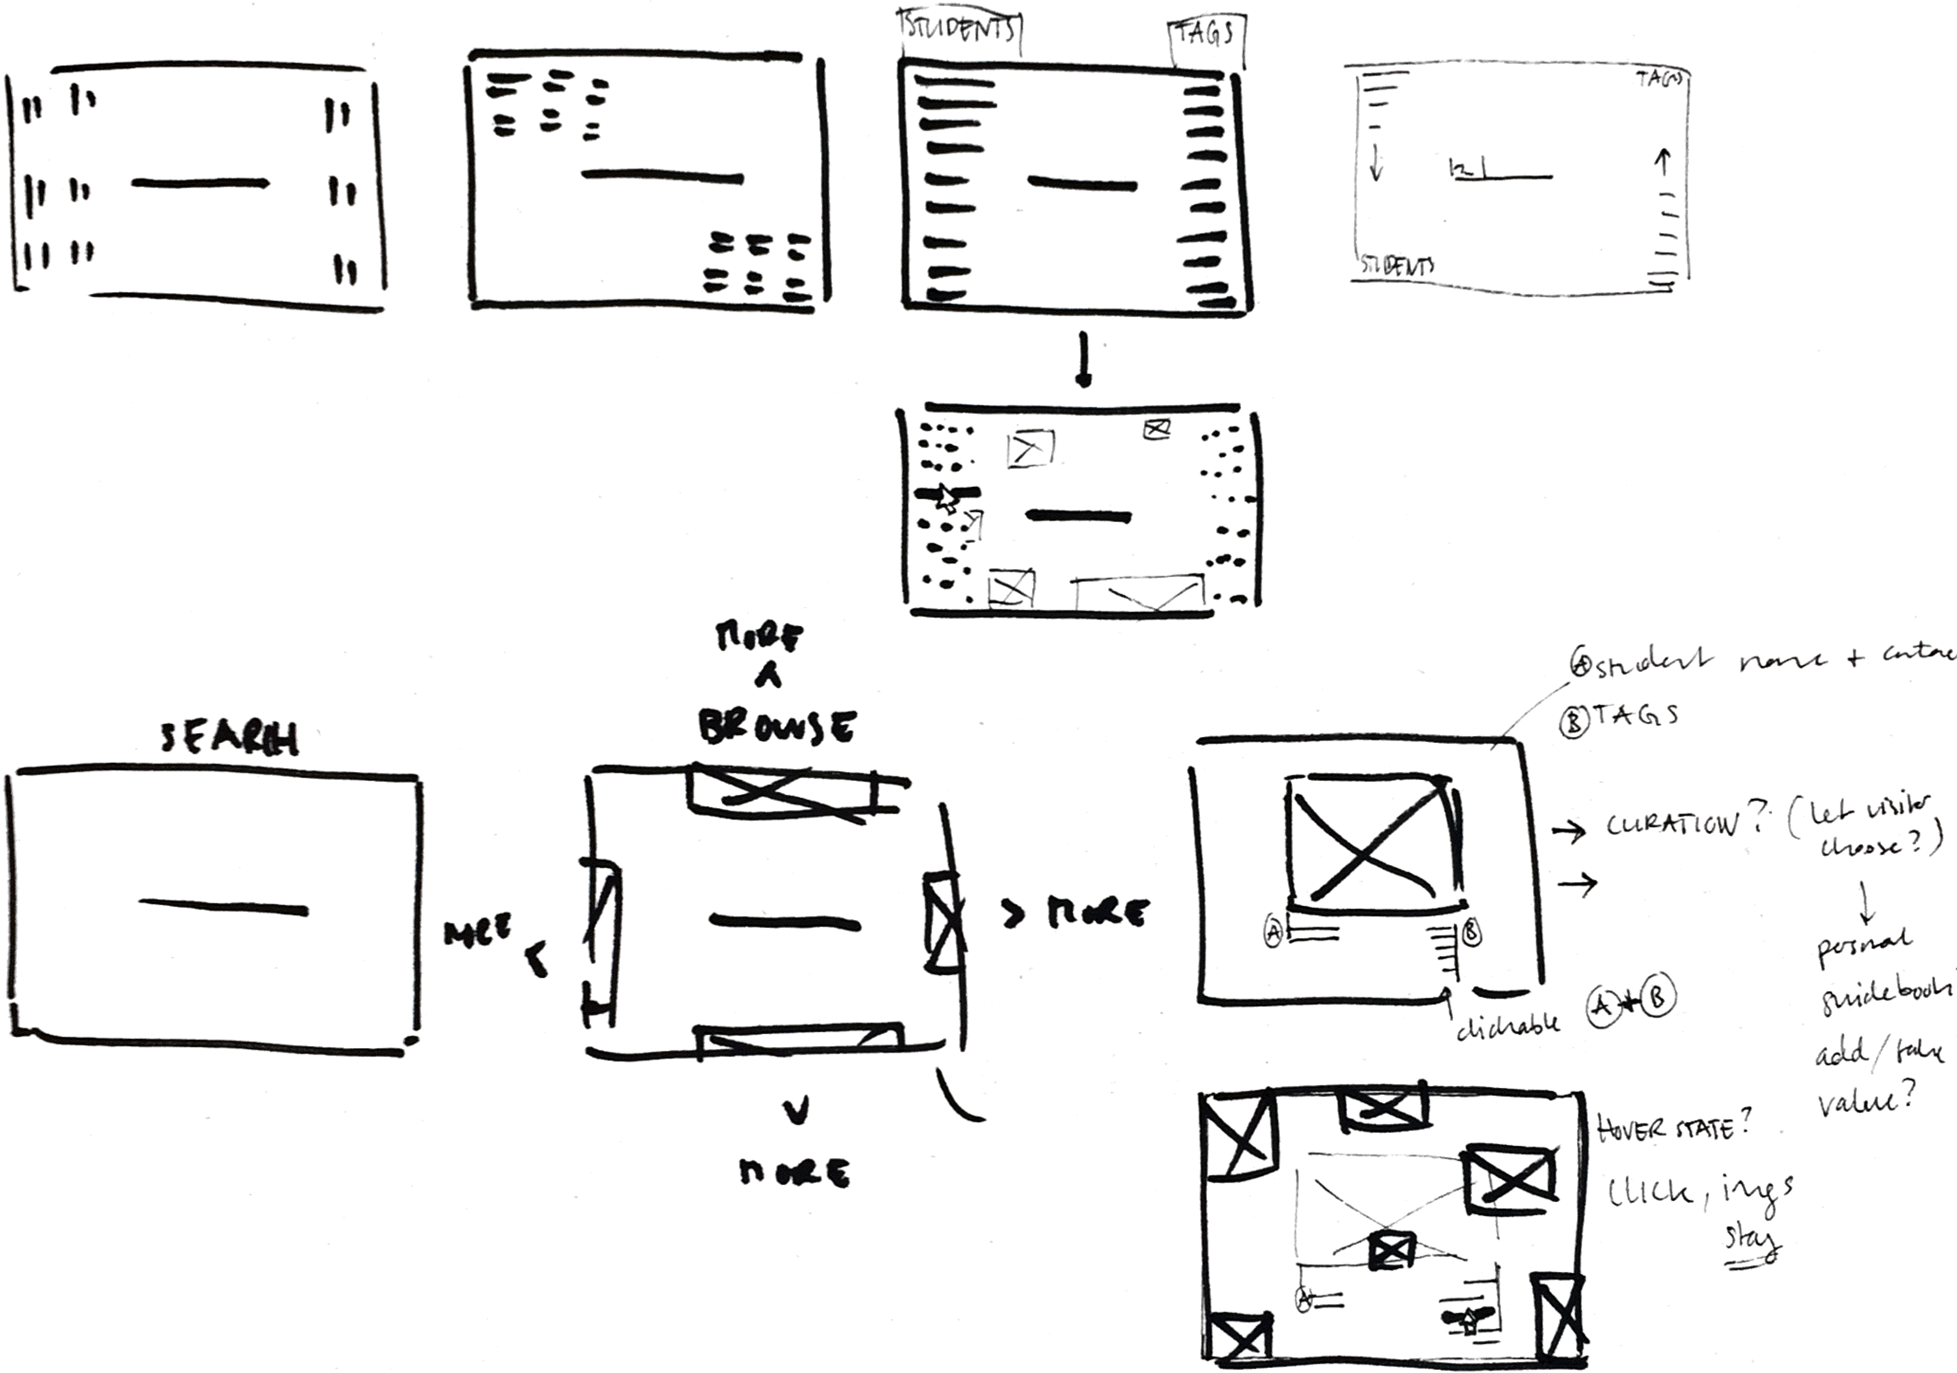 STUDENTS
TAGS
TAGS
STUDENTS
MORE
BROWSE
SEARCH
MORE
> MORE
MORE
A student name +
B TAGS
→ CURATION? (let visitor
choose?)
→
personal
guidebook
add/take
value?
A
B
clickable A+B
HOVER STATE?
CLICK, imgs
stay
A